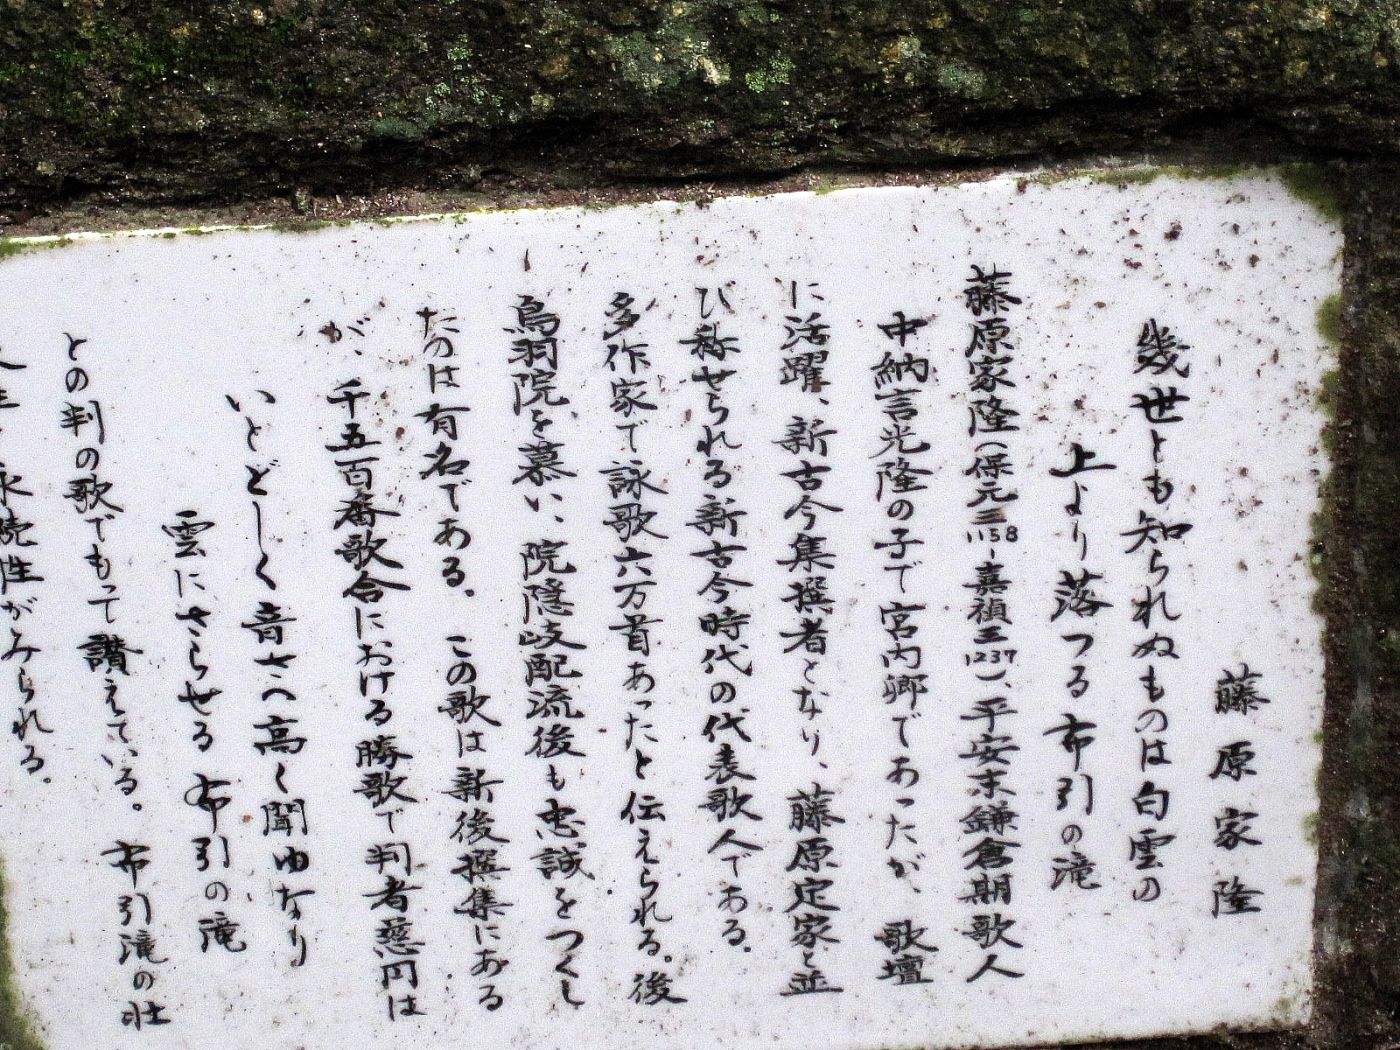 藤原家隆
幾世とも知られぬものは白雲の
上より落つる布引の滝
藤原家隆(保元三1158-嘉禎三1237)、平安末鎌倉期歌人
中納言光隆の子で宮内卿であったが、歌壇
に活躍、新古今集撰者となり、藤原定家と並
び称せられる新古今時代の代表歌人である。
多作家で詠歌六万首あったと伝えられる。後
鳥羽院を慕い、院隠岐配流後も忠誠をつくし
たのは有名である。この歌は新後撰集にある
が、千五百番歌合における勝歌で判者慈円は
いとどしく音さへ高く聞ゆなり
雲にさらせる布引の滝
との判の歌でもって讃えている。布引滝の壮
永続性がみられる。